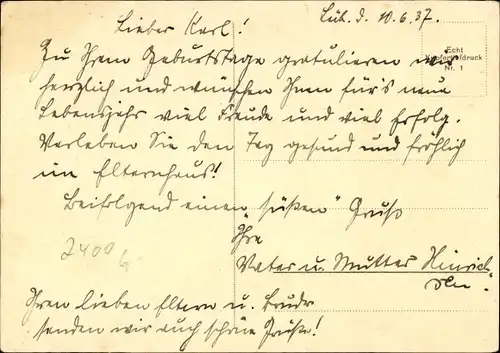 Lüb. d. 10.6.37.
Lieber Karl!
Echt
Kupfertiefdruck
Nr. 1
Zu Ihrem Geburtstage gratulieren wir
herzlich und wünschen Ihnen für's neue
Lebensjahr viel Freude und viel Erfolg.
Verleben Sie den Tag gesund und fröhlich
im Elternhaus!
Beifolgend einen "süßen" Gruß
Ihre
Vater u. Mutter Hinrich-
sen.
Ihren lieben Eltern u. Bruder
senden wir auch schöne Grüße!
2400